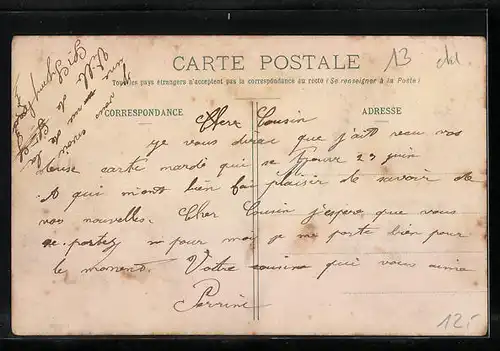 CARTE POSTALE
13
Tous les pays étrangers n'acceptent pas la correspondance au recto (Se renseigner à la Poste)
CORRESPONDANCE
ADRESSE
Cher Cousin
je vous dirai que j'ait recu vos
carte mardi qui se trouve 23 juin
A qui m'ont bien fai plaisir de savoir de
vos nouvelles. Cher Cousin j'espère que vous
portez pour moi je me porte bien pour
le moment. Votre cousine qui vous aime
Perrine
12,-
vous
une de
Ville de